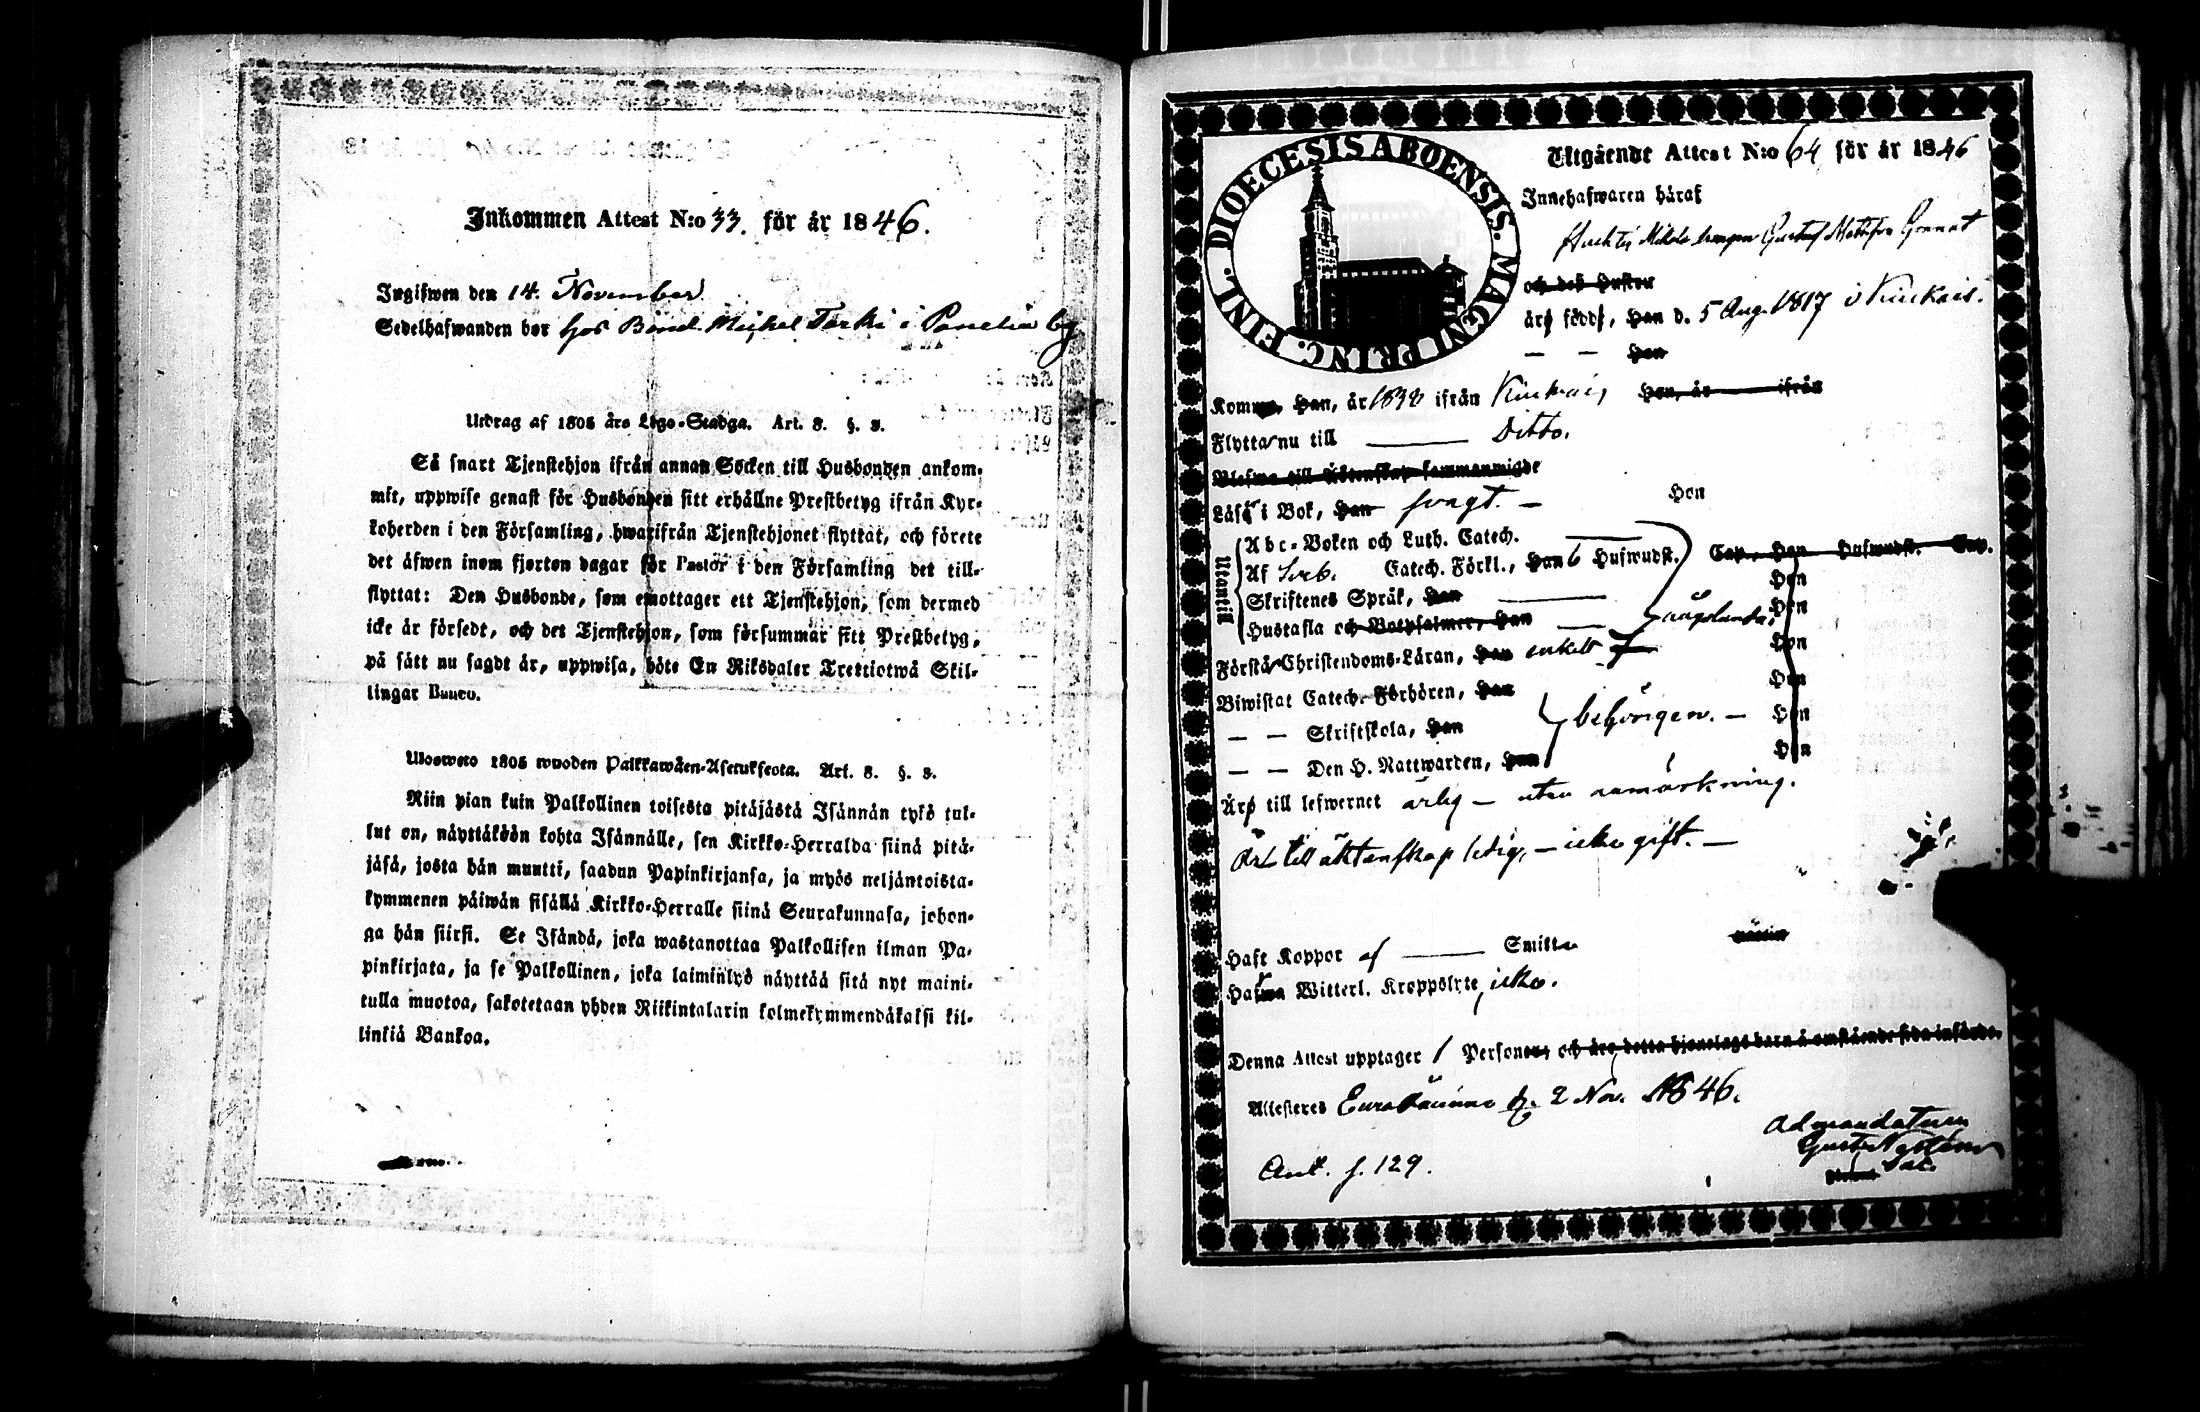 Inkommen Attest N:o 33. för år 1846.
Ingifwen den 14. November
Sedelhafwanden bor hos Bond. Michel Torki i Panelia by
Utdrag af 1805 års Lego-Stadga. Art. 8. §. 3.
Så snart Tjenstehjon ifrån annan Socken till Husbonden ankom-
mit, uppwise genast för Husbonden sitt erhållne Prestbetyg ifrån Kyr-
koherden i den Församling, hwarifrån Tjenstehjonet flyttat, och förete
det äfwen inom fjorton dagar för Pastor i den Församling det till-
flyttat: Den Husbonde, som emottager ett Tjenstehjon, som dermed
icke är försedt, och det Tjenstehjon, som försummar sitt Prestbetyg,
på sätt nu sagdt är, uppwisa, böte En Riksdaler Trettiotwå Skil-
lingar Banco.
Ulosweto 1805 wuoden Palkkawäen-Asetuksesta. Art. 8. §. 3.
Niin pian kuin Palkollinen toisesta pitäjästä Isännän tykö tul-
lut on, näyttäköön kohta Isännälle, sen Kirkko-Herralda siinä pitä-
jäsä, josta hän muutti, saadun Papinkirjansa, ja myös neljäntoista-
kymmenen päiwän sisällä Kirkko-Herralle siinä Seurakunnasa, johon-
ga hän siirsi. Se Isändä, joka wastanottaa Palkollisen ilman Pa-
pinkirjata, ja se Palkollinen, joka laiminlyö näyttää sitä nyt maini-
tulla muotoa, sakotetaan yhden Riikintalarin kolmekymmendäkaksi kil-
linkiä Bankoa.
DIOECESIS ABOENSIS. MAGNI PRINC. FINL.
Utgående Attest N:o 64 för år 1846
Innehafwaren häraf
Mikola drengen Gustaf Mattsson Granat
och des Hustru
äro födde, Han d. 5 Aug. 1817 i Kiukais.
— — Hon
Komne, Han, år 1838 ifrån Kiukais Hon, år ifrån
Flytta nu till — Ditto.
Blefwo till Äktenskap sammanwigde
Läsa i Bok, Han svagt. — Hon
Utantill
Abc-Boken och Luth. Catech.
Af Sveb. Catech. Förkl., Han 6 Hufwudst. Cap. Hon Hufwudst. Cap.
Skriftenes Språk, Han — Hon
Hustafla och Botpsalmer, Han — Hon
Förstå Christendoms-Läran, Han enkelt Hon
Biwistat Catech. Förhören, Han Hon
— — Skriftskola, Han behörigen. — Hon
— — Den H. Nattwarden, Han Hon
Äro till lefwernet ärlig — utan anmärkning.
Är till äktenskap ledig, — icke gift. —
Haft Koppor af — Smitta
Hafwa Witterl. Kroppslyte, icke.
Denna Attest upptager 1 Personer och äro detta hjonelags barn å omstående sida införde.
Attesteras Euraåminne d. 2 Nov. 1846.
Ad mandatum
Sac.
f. 129.